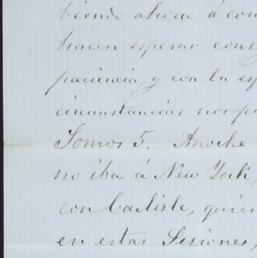 biendo ahora á con
hacen esperar cons
paciencia y con la es
circunstancias nos p
Somos 5. Anoche
no iba á New York,
con Carlisle, quien
en estas Sesiones,